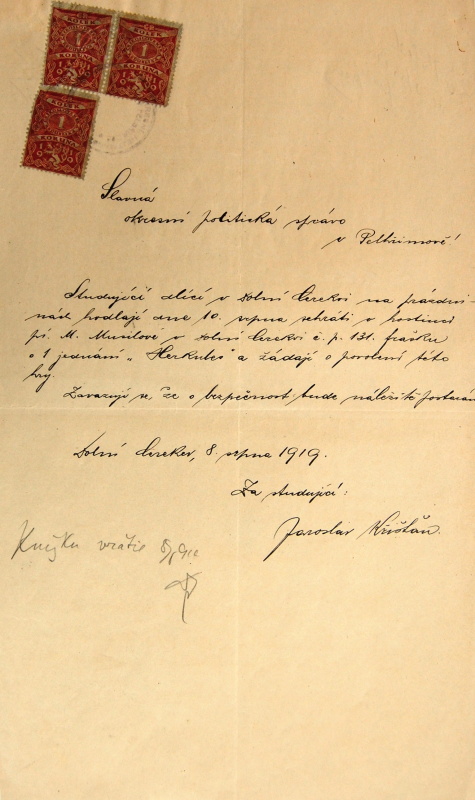 KOLEK
1
KORUNA
KOLEK
1
KORUNA
KOLEK
1
KORUNA
Slavná
okresní politická správo
v Pelhřimově!
Studující dlící v Dolní Cerekvi na prázdni-
nách hodlají dne 10. srpna sehráti v hostinci
pí. M. Munilové v Dolní Cerekvi č. p. 131. frašku
o 1 jednání „Herkules" a žádají o povolení této
hry.
Zavazují se, že o bezpečnost bude náležitě postaráno
Dolní Cerekev, 8. srpna 1919.
Za studující:
Jaroslav Krištan.
Knížku vrátil